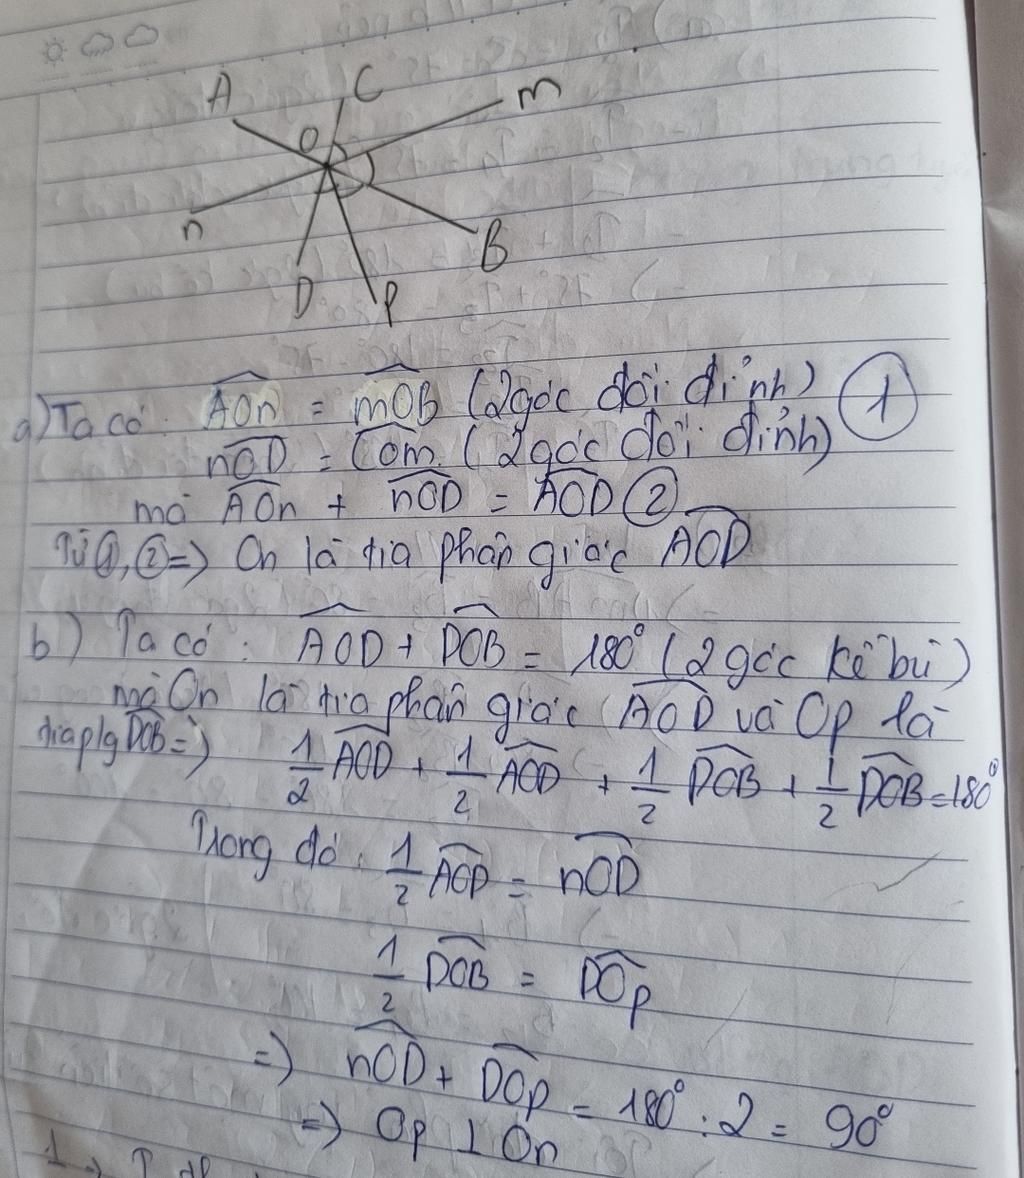 A
C
m
O
n
B
D
P
a) Ta có: AOn = mOB (2góc đối đỉnh) 1
nOD = Com. (2góc đối đỉnh)
mà AOn + nOD = AOD ②
Từ ①, ② => On là tia phân giác AOD
b) Ta có: AOD + DOB = 180° (2 góc kề bù)
mà On là tia phân giác AOD và Op là
tia p/g DOB =) 1/2 AOD + 1/2 AOD + 1/2 DOB + 1/2 DOB = 180°
Trong đó: 1/2 AOD = nOD
1/2 DOB = DOp
=) nOD + DOp = 180° : 2 = 90°
=) Op ⊥ On